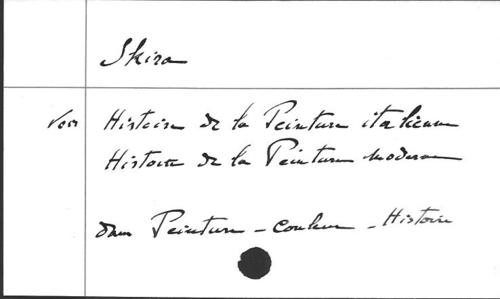 Skira
Voir Histoire de la Peinture italienne
Histoire de la Peinture moderne
dans Peinture - couleur - Histoire